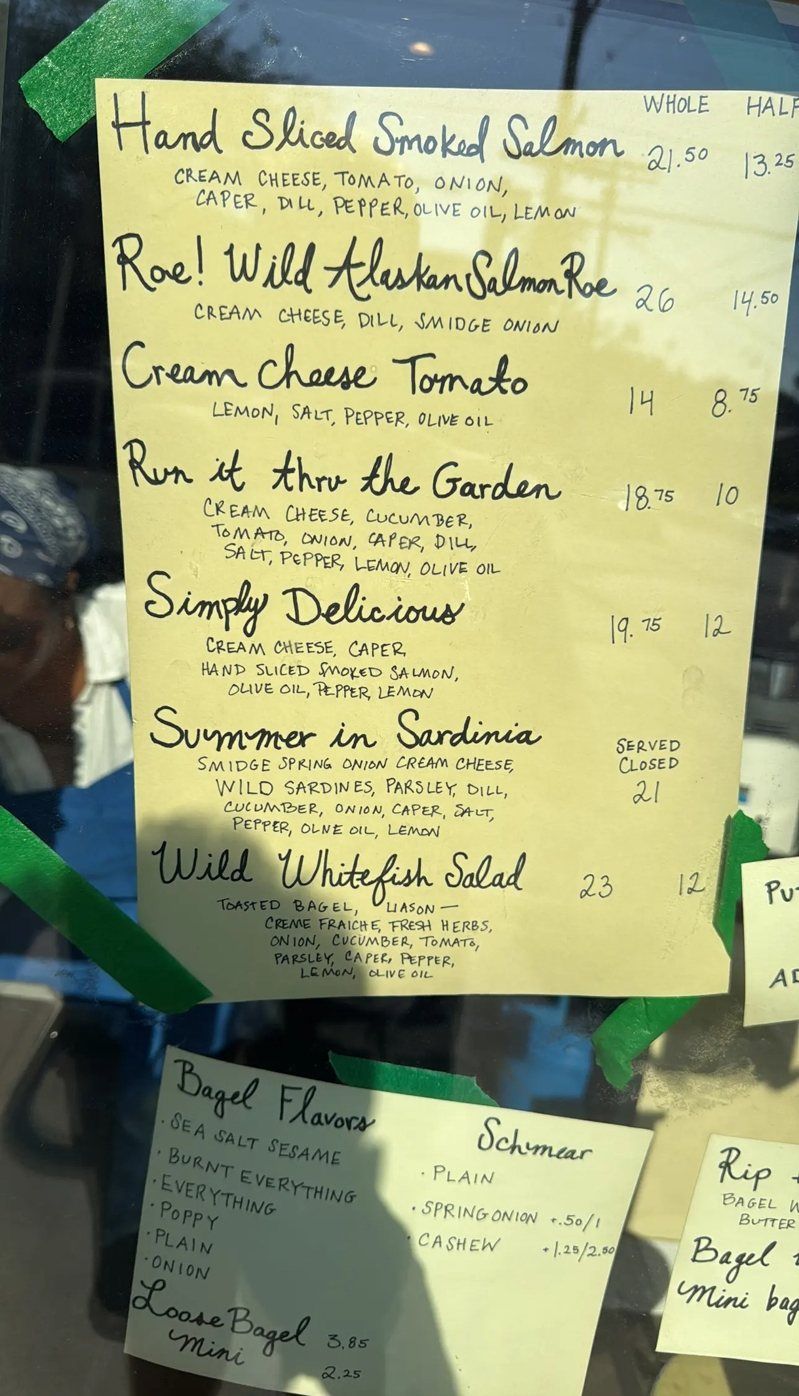 WHOLE HALF
Hand Sliced Smoked Salmon 21.50 13.25
CREAM CHEESE, TOMATO, ONION,
CAPER, DILL, PEPPER, OLIVE OIL, LEMON
Roe! Wild Alaskan Salmon Roe 26 14.50
CREAM CHEESE, DILL, SMIDGE ONION
Cream Cheese Tomato 14 8.75
LEMON, SALT, PEPPER, OLIVE OIL
Run it thru the Garden 18.75 10
CREAM CHEESE, CUCUMBER,
TOMATO, ONION, CAPER, DILL,
SALT, PEPPER, LEMON, OLIVE OIL
Simply Delicious 19.75 12
CREAM CHEESE, CAPER,
HAND SLICED SMOKED SALMON,
OLIVE OIL, PEPPER, LEMON
Summer in Sardinia SERVED
CLOSED
21
SMIDGE SPRING ONION CREAM CHEESE,
WILD SARDINES, PARSLEY, DILL,
CUCUMBER, ONION, CAPER, SALT,
PEPPER, OLIVE OIL, LEMON
Wild Whitefish Salad 23 12
TOASTED BAGEL, LIASON —
CREME FRAICHE, FRESH HERBS,
ONION, CUCUMBER, TOMATO,
PARSLEY, CAPER, PEPPER,
LEMON, OLIVE OIL
Bagel Flavors
· SEA SALT SESAME
· BURNT EVERYTHING
· EVERYTHING
· POPPY
· PLAIN
· ONION
Loose Bagel 3.85
Mini 2.25
Schmear
· PLAIN
· SPRING ONION +.50/1
· CASHEW +1.25/2.50
Rip
BAGEL
BUTTER
Bagel
Mini bag